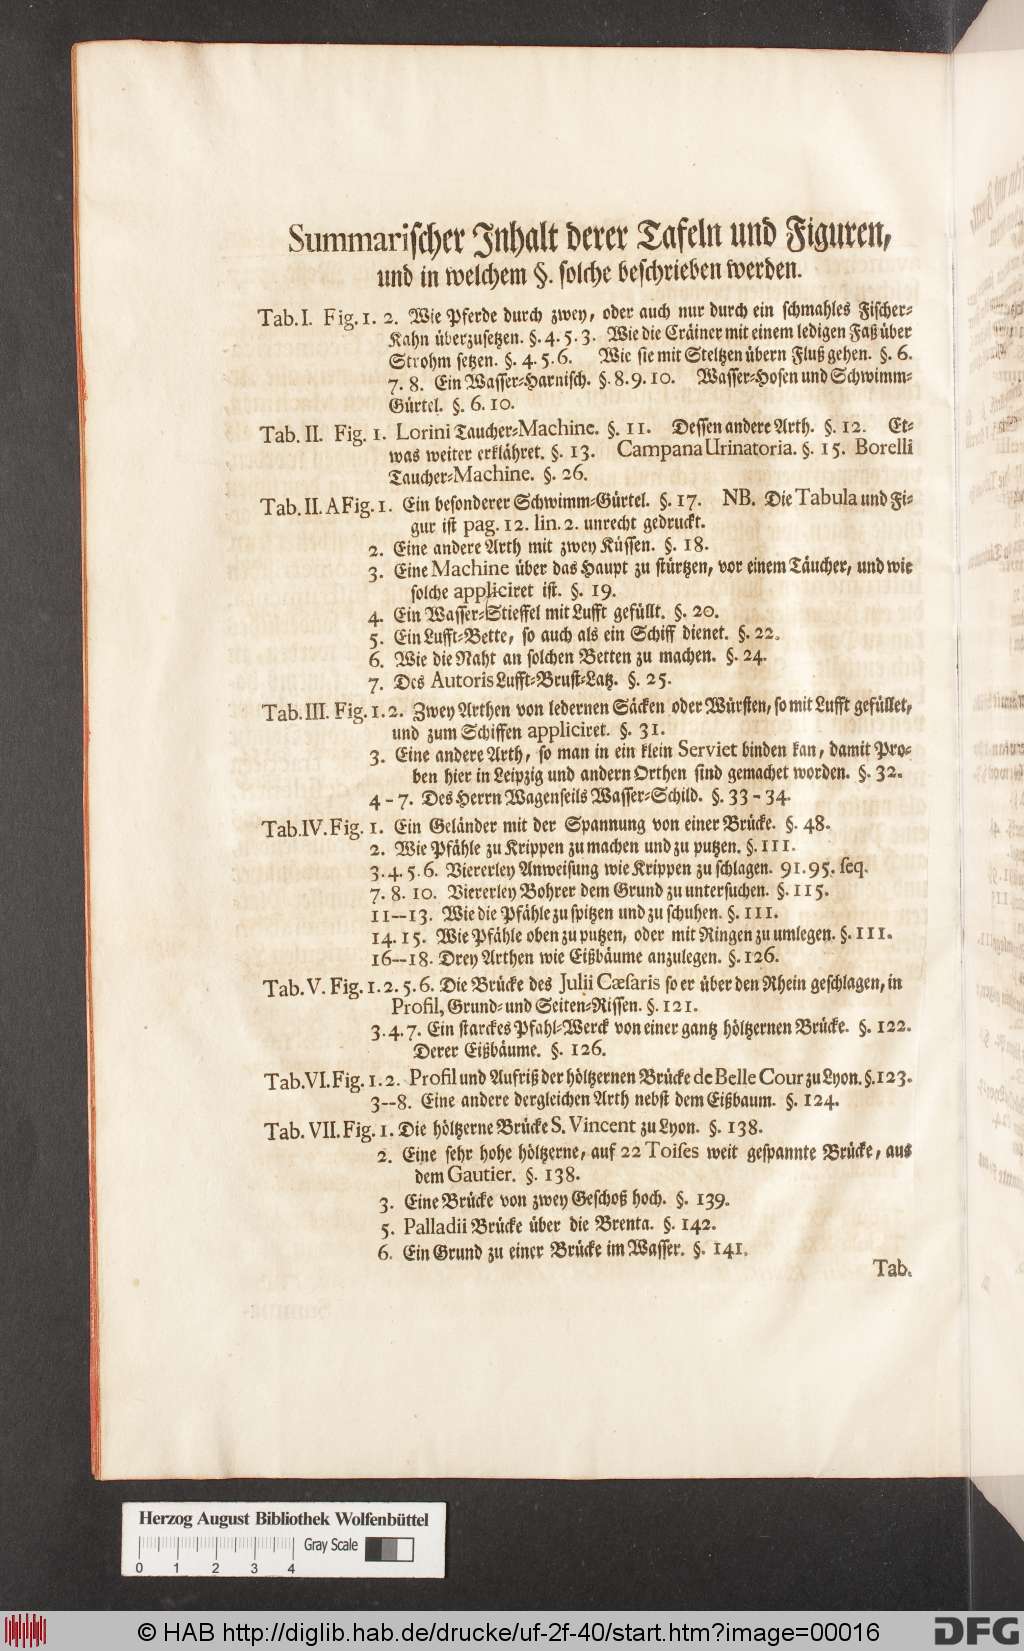 Summarischer Inhalt derer Tafeln und Figuren,
und in welchem §. solche beschrieben werden.
Tab. I. Fig. 1. 2. Wie Pferde durch zwey, oder auch nur durch ein schmahles Fischer-
Kahn überzusetzen. §. 4. 5. 3. Wie die Cräiner mit einem ledigen Faß über
Strohm setzen. §. 4. 5. 6. Wie sie mit Steltzen übern Fluß gehen. §. 6.
7. 8. Ein Wasser-Harnisch. §. 8. 9. 10. Wasser-Hosen und Schwimm-
Gürtel. §. 6. 10.
Tab. II. Fig. 1. Lorini Taucher-Machine. §. 11. Dessen andere Arth. §. 12. Et-
was weiter erklähret. §. 13. Campana Urinatoria. §. 15. Borelli
Taucher-Machine. §. 26.
Tab. II. A Fig. 1. Ein besonderer Schwimm-Gürtel. §. 17. NB. Die Tabula und Fi-
gur ist pag. 12. lin. 2. unrecht gedruckt.
2. Eine andere Arth mit zwey Küssen. §. 18.
3. Eine Machine über das Haupt zu stürtzen, vor einem Täucher, und wie
solche appliciret ist. §. 19.
4. Ein Wasser-Stieffel mit Lufft gefüllt. §. 20.
5. Ein Lufft-Bette, so auch als ein Schiff dienet. §. 22.
6. Wie die Naht an solchen Betten zu machen. §. 24.
7. Des Autoris Lufft-Brust-Latz. §. 25.
Tab. III. Fig. 1. 2. Zwey Arthen von ledernen Säcken oder Würsten, so mit Lufft gefüllet,
und zum Schiffen appliciret. §. 31.
3. Eine andere Arth, so man in ein klein Serviet binden kan, damit Pro-
ben hier in Leipzig und andern Orthen sind gemachet worden. §. 32.
4 - 7. Des Herrn Wagenseils Wasser-Schild. §. 33 - 34.
Tab. IV. Fig. 1. Ein Geländer mit der Spannung von einer Brücke. §. 48.
2. Wie Pfähle zu Krippen zu machen und zu putzen. §. 111.
3. 4. 5. 6. Viererley Anweisung wie Krippen zu schlagen. 91. 95. seq.
7. 8. 10. Viererley Bohrer dem Grund zu untersuchen. §. 115.
11--13. Wie die Pfähle zu spitzen und zu schuhen. §. 111.
14. 15. Wie Pfähle oben zu putzen, oder mit Ringen zu umlegen. §. 111.
16--18. Drey Arthen wie Eißbäume anzulegen. §. 126.
Tab. V. Fig. 1. 2. 5. 6. Die Brücke des Julii Cæsaris so er über den Rhein geschlagen, in
Profil, Grund- und Seiten-Rissen. §. 121.
3. 4. 7. Ein starckes Pfahl-Werck von einer gantz höltzernen Brücke. §. 122.
Derer Eißbäume. §. 126.
Tab. VI. Fig. 1. 2. Profil und Aufriß der höltzernen Brücke de Belle Cour zu Lyon. §. 123.
3--8. Eine andere dergleichen Arth nebst dem Eißbaum. §. 124.
Tab. VII. Fig. 1. Die höltzerne Brücke S. Vincent zu Lyon. §. 138.
2. Eine sehr hohe höltzerne, auf 22 Toises weit gespannte Brücke, aus
dem Gautier. §. 138.
3. Eine Brücke von zwey Geschoß hoch. §. 139.
5. Palladii Brücke über die Brenta. §. 142.
6. Ein Grund zu einer Brücke im Wasser. §. 141.
Tab.
Herzog August Bibliothek Wolfenbüttel
Gray Scale
0 1 2 3 4
© HAB http://diglib.hab.de/drucke/uf-2f-40/start.htm?image=00016
DFG